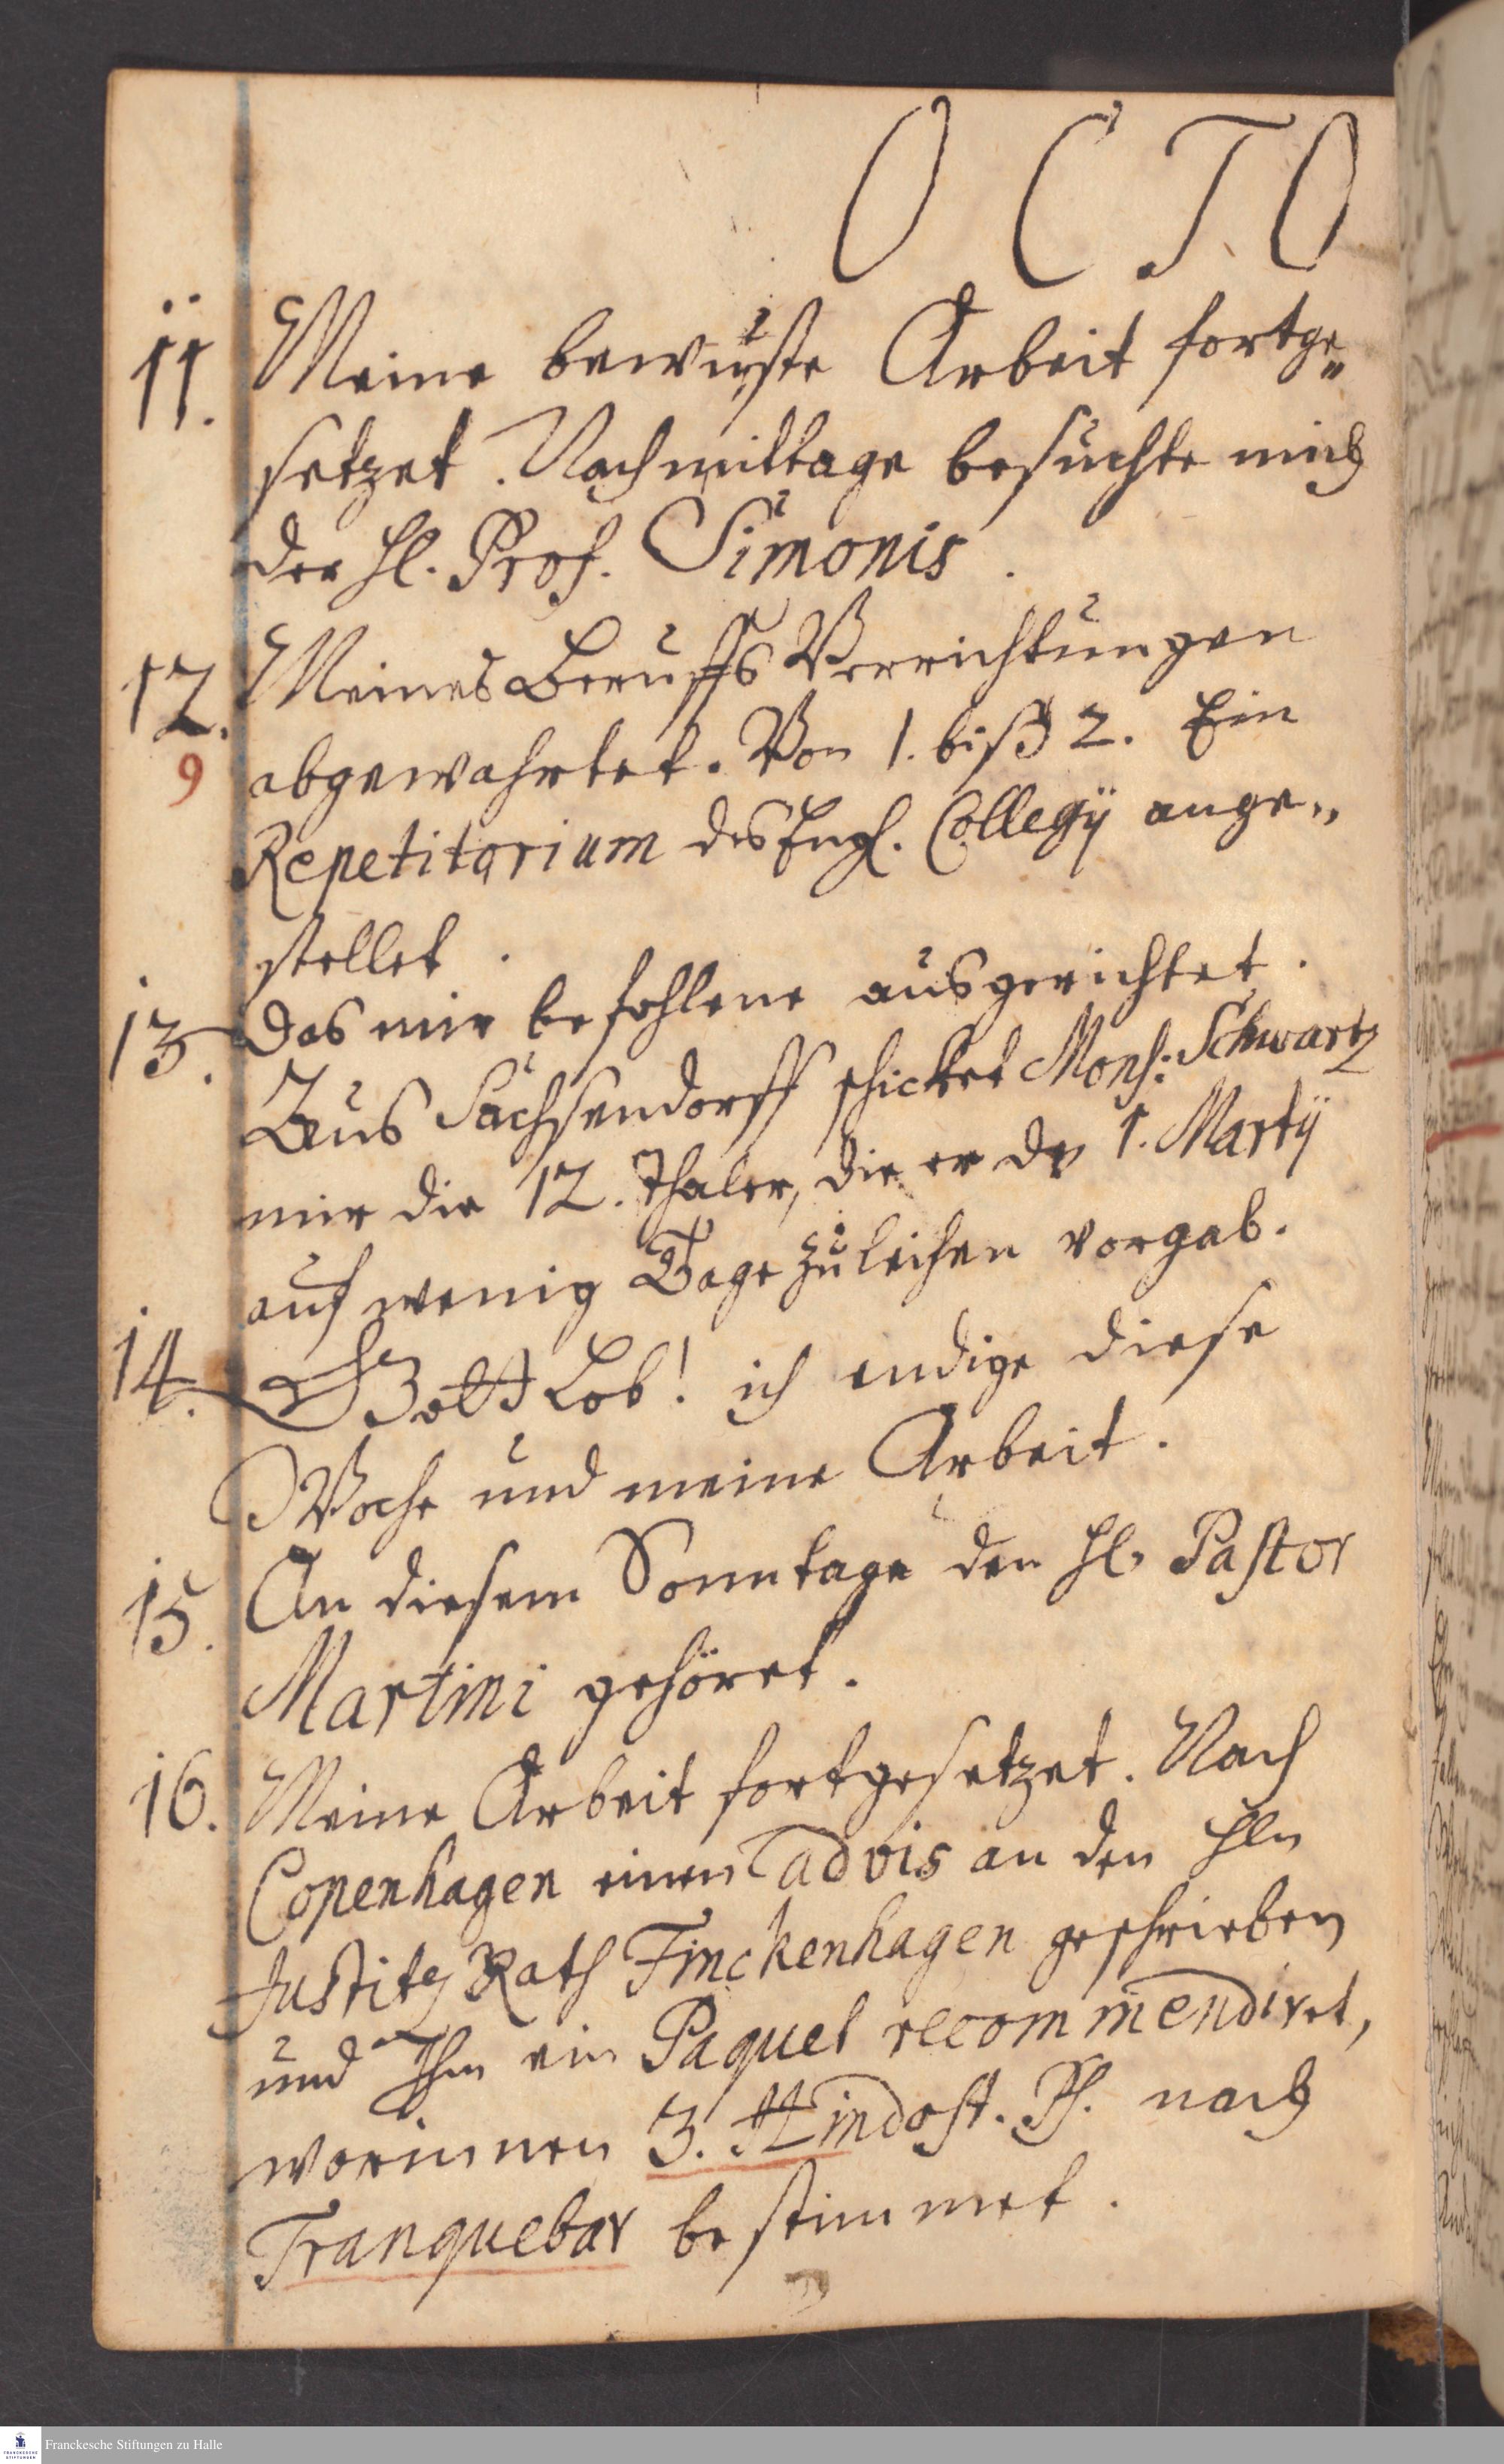 OCTO
11. Meine bewuste Arbeit fortge„
setzet. Nachmittage besuchte mich
der Hl. Prof. Simonis.
12. Meines Beruffs Verrichtungen
9 abgewahrtet. Von 1. biß 2. Ein
Repetitorium des Engl. Collegÿ ange„
stellet.
13. Das mir befohlene ausgerichtet.
Aus Sachsendorff schicket Mons: Schwartz
mir die 12. Thaler, die er den 1. Martÿ
auf wenig Tage zu leihen vorgab.
14. Gott Lob! ich endige diese
Woche und meine Arbeit.
15. An diesem Sonntage den Hl. Pastor
Martini gehöret.
16. Meine Arbeit fortgesetzet. Nach
Copenhagen einen advis an den Hln
Justitz Rath Finckenhagen geschrieben
und Ihm ein Paquet recommendiret,
worinnen 3. Hindost. Ps. nach
Tranquebar bestimmet.
Franckesche Stiftungen zu Halle